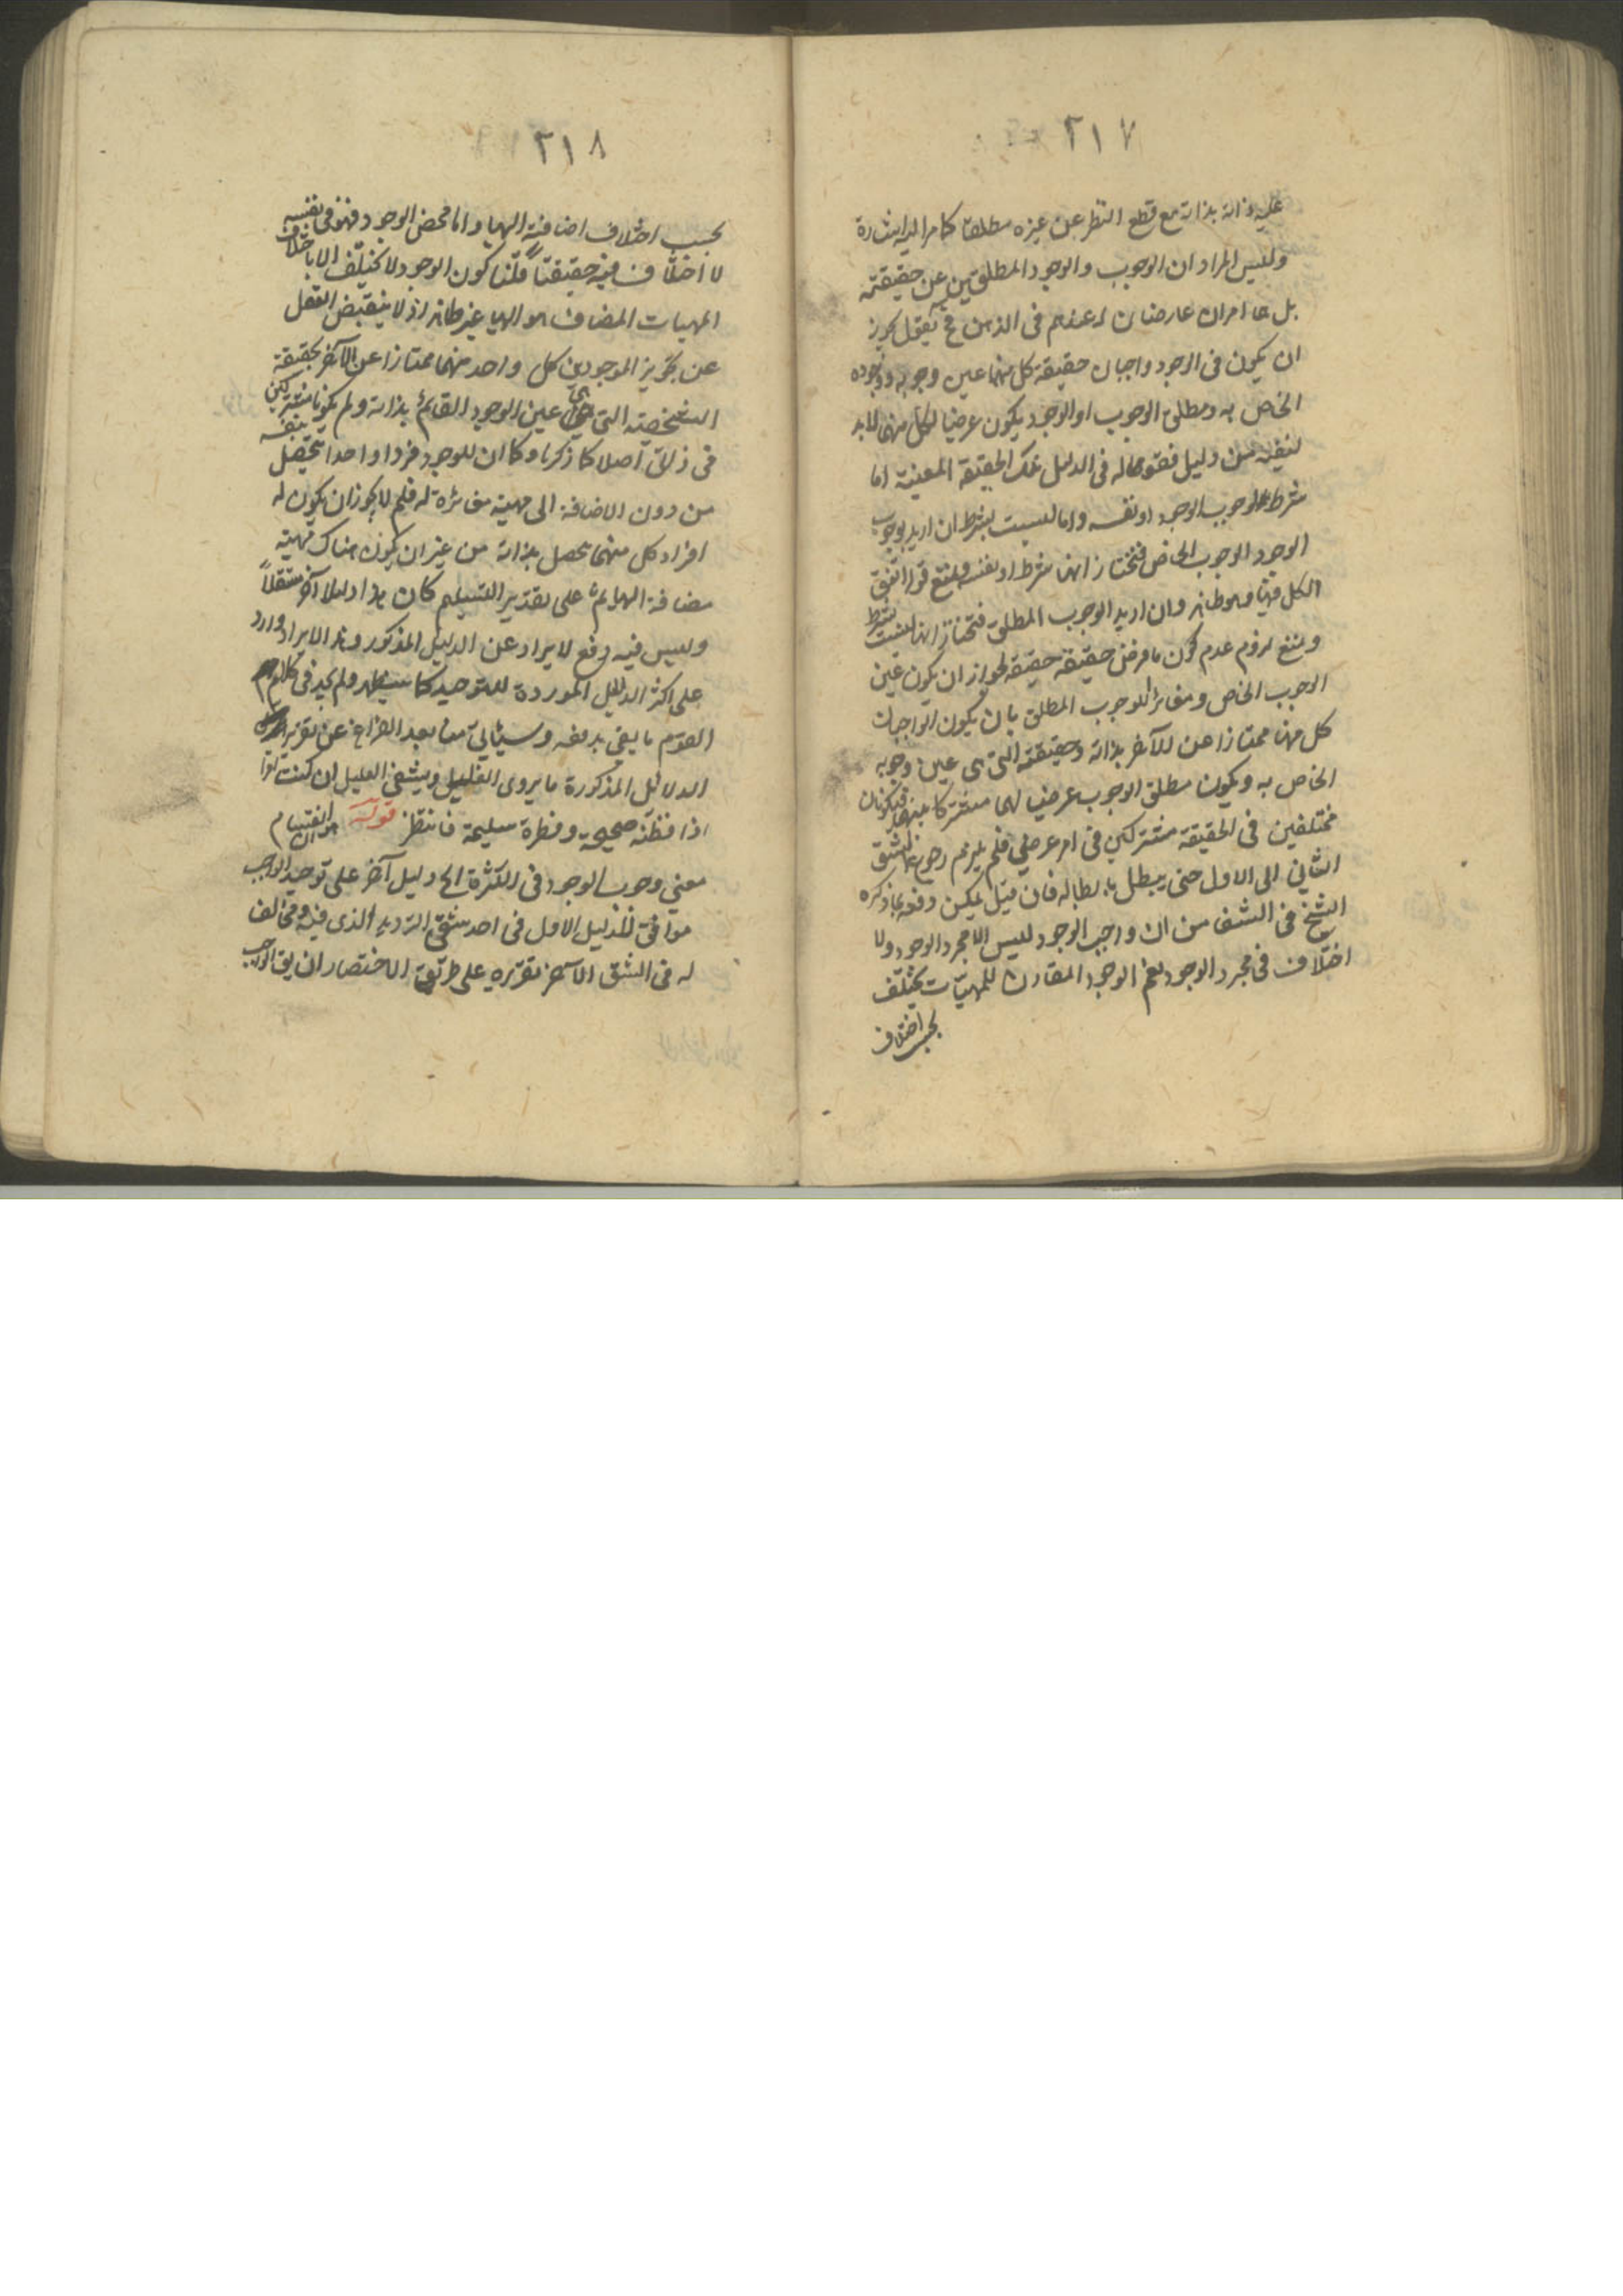 ٢١٧
عليه ذاته بذاته مع قطع النظر عن غيره مطلقا كما مر اليه اشارة
وليس المراد ان الوجوب والوجود المطلقين عين حقيقته
بل هما امران عارضان له عندهم فى الذهن فح نقول يجوز
ان يكون فى الوجود واجبان حقيقة كل منهما عين وجوبه ووجوده
الخاص به ومطلق الوجوب او الوجود يكون عرضيا لكل منهما لا بد
لنفيه من دليل فقوله فى الدليل تلك الحقيقة المعينة اما
شرط لوجوب الوجود او نفسه واما ليست بشرط ان اريد بوجوب
الوجود الوجوب الخاص فنختار انها شرط او نفسه ونمنع قوله اتفق
الكل فيها وهو ظاهر وان اريد الوجوب المطلق فنختار انها ليست بشرط
ونمنع لزوم عدم كون ما فرض حقيقة حقيقة لجواز ان يكون عين
الوجوب الخاص ومغايرا للوجوب المطلق بان يكون الواجبان
كل منهما ممتازا عن الآخر بذاته وحقيقته التى هى عين وجوبه
الخاص به ويكون مطلق الوجوب عرضيا لهما مشتركا بينهما فيكونان
مختلفين فى الحقيقة مشتركين فى امر عرضي فلم يلزم رجوع الشق
الثاني الى الاول حتى يبطل بابطاله فان قيل يمكن دفعه بما ذكره
الشيخ فى الشفا من ان واجب الوجود ليس الا مجرد الوجود ولا
اختلاف فى مجرد الوجود نعم الوجود المقارن للمهيّات يختلف
بحسب اختلاف
٢١٨
بحسب اختلاف اضافته اليها واما محض الوجود فهو فى نفسه
لا اختلاف فيه حقيقتاً قلنا كون الوجود لا يختلف الا باختلاف
المهيات المضاف هو اليها غير ظاهر اذ لا ينقبض العقل
عن تجويز الموجودين كل واحد منهما ممتازا عن الآخر بحقيقة
الشخصية التى هى عين الوجود القائم بذاته ولم يكونا مشتركين
فى ذاتى اصلا كما ذكرنا وكما ان للوجود فردا واحدا يتحصل بنفسه
من دون الاضافة الى مهية مغائرة له فلم لا يجوز ان يكون له
افراد كل منهما تحصل بذاته من غير ان يكون هناك مهية
مضافة اليها ثم على تقدير التسليم كان هذا دليلا آخر مستقلاً
وليس فيه دفع لايراد عن الدليل المذكور وهذا الايراد وارد
على اكثر الدلائل الموردة للتوحيد كما سيظهر ولم يجد فى كلام
القوم ما يفى بدفعه وسيأتي منا بعد الفراغ عن تقرير
الدلائل المذكورة ما يروى الغليل ويشفي العليل ان كنت
اذا فطنة صحيحة وفطرة سليمة فانتظر قوله انقسام
معنى وجوب الوجود فى الكثرة الخ دليل آخر على توحيد الواجب
موافق للدليل الاول فى احد شقي الترديد الذى فيه ومخالف
له فى الشق الآخر تقريره على طريق الاختصار ان يق الواجب